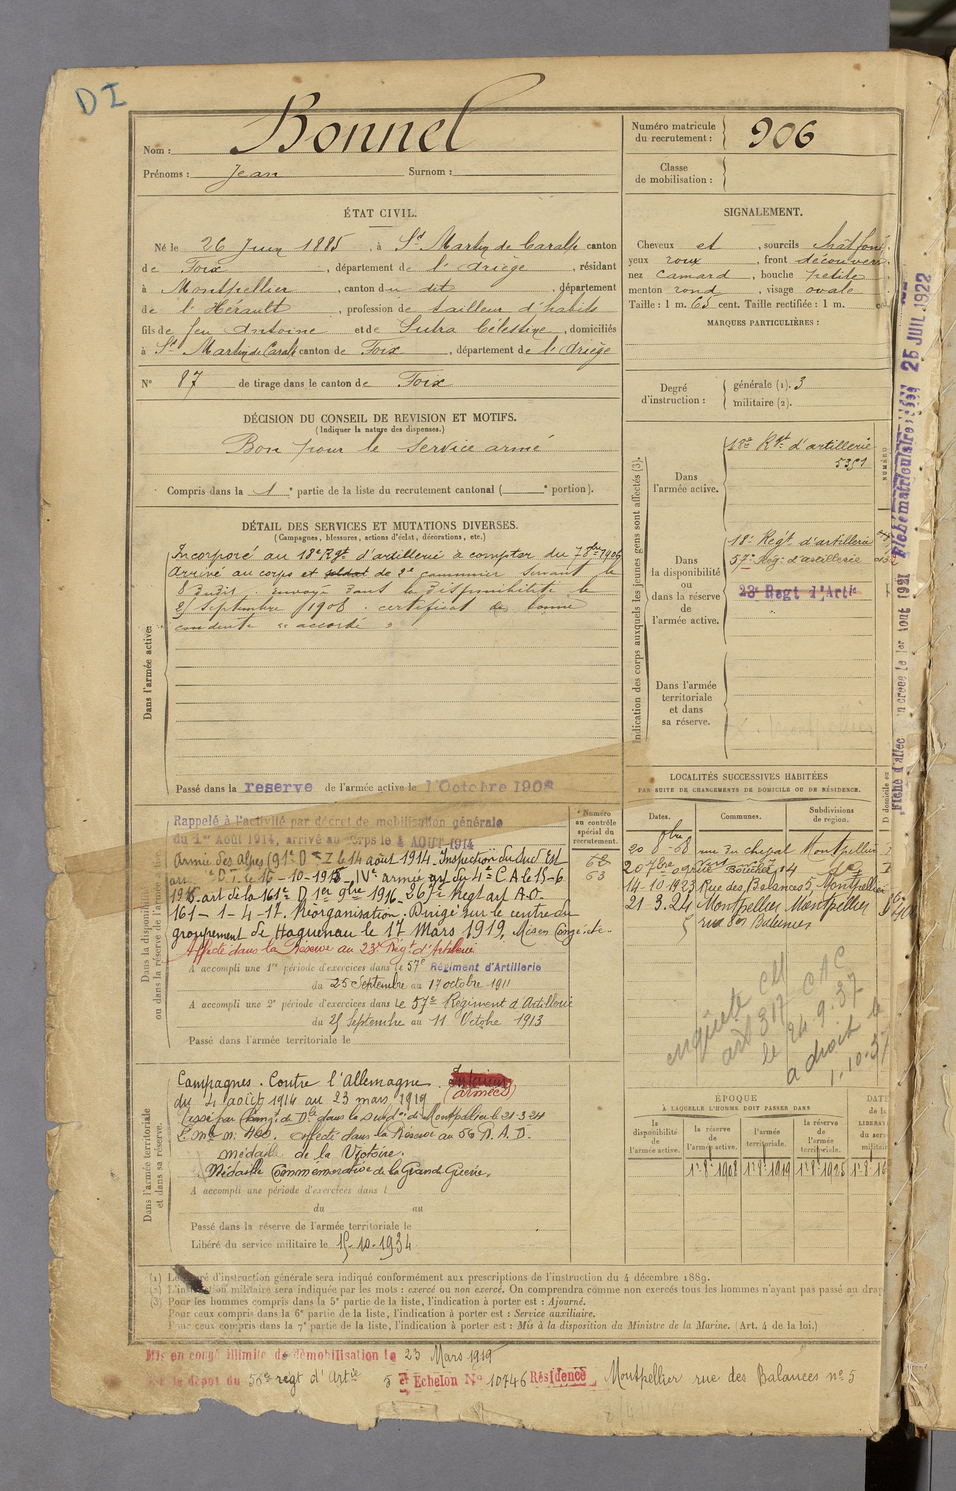 DI
Nom : Bonnel
Prénoms : Jean Surnom :
Numéro matricule
du recrutement : 906
Classe
de mobilisation :
ÉTAT CIVIL.
Né le 26 Juin 1885, à St Martin de Caralp canton
de Foix, département de l'Ariège, résidant
à Montpellier, canton du dit, département
de l'Hérault, profession de tailleur d'habits
fils de feu Antoine et de Sutra Célestine, domiciliés
à St Martin de Caralp canton de Foix, département de l'Ariège
N° 87 de tirage dans le canton de Foix
SIGNALEMENT.
Cheveux et, sourcils chat foncé
yeux roux, front découvert
nez camard, bouche petite
menton rond, visage ovale
Taille : 1 m. 65 cent. Taille rectifiée : 1 m.
MARQUES PARTICULIÈRES :
Degré
d'instruction :
générale (1). 3
militaire (2).
DÉCISION DU CONSEIL DE REVISION ET MOTIFS.
(Indiquer la nature des dispenses.)
Bon pour le service armé
Compris dans la 1e partie de la liste du recrutement cantonal ( e portion).
DÉTAIL DES SERVICES ET MUTATIONS DIVERSES.
(Campagnes, blessures, actions d'éclat, décorations, etc.)
Dans l'armée active.
Incorporé au 18e Rgt d'artillerie à compter du 7 8bre 1906
Arrivé au corps et soldat de 2e canonnier servant le
8 dudit. envoyé dans la disponibilité le
25 Septembre 1908. certificat de bonne
conduite "accordé"
Passé dans la reserve de l'armée active le 1 Octobre 1908
Indication des corps auxquels les jeunes gens sont affectés (3).
Dans
l'armée active.
18e Rgt d'artillerie
5351
Dans
la disponibilité
ou
dans la réserve
de
l'armée active.
18e Régt d'artillerie
57e Rég. d'artillerie
23e Regt d'Artie
Dans l'armée
territoriale
et dans
sa réserve.
NUMÉRO
Fiche matriculaire
25 JUIL 1922
Fiche d'affec
1er Aout 1921
Dans la disponibilité
ou dans la réserve de l'armée
Rappelé à l'activité par décret de mobilisation générale
du 1er Août 1914, arrivé au corps le 4 AOUT 1914
Armée des Alpes (91e D I le 14 août 1914. Inspection du Sud Est
D.T. le 16-10-1915 - IVe armée art du 4e C A le 15-6
1916 - art de la 161e D 1er 9bre 1916 - 267e Regt art A.O.
161 - 1-4-17. Réorganisation. Dirigé sur le centre du
groupement de Haguenau le 17 Mars 1919, Mis en Congé
Affecté dans la Réserve au 23e Régt d'Artillerie
A accompli une 1re période d'exercices dans le 57e Régiment d'Artillerie
du 25 Septembre au 17 octobre 1911
A accompli une 2e période d'exercices dans le 57e Régiment d'Artillerie
du 25 Septembre au 11 Octobre 1913
Passé dans l'armée territoriale le
Numéro
au contrôle
spécial du
recrutement.
68
63
LOCALITÉS SUCCESSIVES HABITÉES
PAR SUITE DE CHANGEMENTS DE DOMICILE OU DE RÉSIDENCE.
Dates. Communes. Subdivisions
de région.
20 8bre 08 rue du Cheval Montpellier
20 7bre 09 14
14-10-1923 Rue des Balances 5, Montpellier
21 3.24 Montpellier Montpellier
5 rue des Balances
enquête CM
art 317 CAC
le 24.9.37
a droit le
1-10-37
Dans l'armée territoriale
et dans sa réserve.
Campagnes. Contre l'Allemagne. Intérieur
(armées)
du 4 août 1914 au 23 mars 1919
Passé par Changt de Dle dans la Subdon de Montpellier le 21-3-24
Affecté dans la Réserve au 56 R.A.D.
médaille de la Victoire.
Médaille Commémorative de la Grande Guerre.
A accompli une période d'exercices dans l
du au
Passé dans la réserve de l'armée territoriale le
Libéré du service militaire le 15-10-1934
ÉPOQUE
À LAQUELLE L'HOMME DOIT PASSER DANS
la
disponibilité
de
l'armée active.
la réserve
de
l'armée active.
l'armée
territoriale.
la réserve
de
l'armée
territoriale.
DATE
de la
1r 8r 1908 1r 8r 1919 1r 8r 1925
(1) Le degré d'instruction générale sera indiqué conformément aux prescriptions de l'instruction du 4 décembre 1889.
(2) L'instruction militaire sera indiquée par les mots : exercé ou non exercé. On comprendra comme non exercés tous les hommes n'ayant pas passé au drap
(3) Pour les hommes compris dans la 5e partie de la liste, l'indication à porter est : Ajourné.
Pour ceux compris dans la 6e partie de la liste, l'indication à porter est : Service auxiliaire.
Pour ceux compris dans la 7e partie de la liste, l'indication à porter est : Mis à la disposition du Ministre de la Marine. (Art. 4 de la loi.)
Mis en congé illimité de démobilisation le 23 Mars 1919
par le dépot du 56e régt d'Artie 5 e Echelon No 10746 Résidence Montpellier rue des Balances no 5